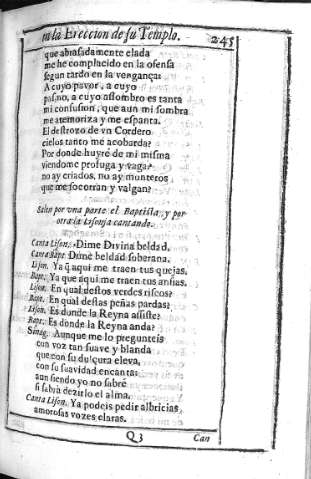 en la Ereccion de su Templo. 245
que abrasadamente elada
me he complacido en la ofensa
segun tardo en la vengança:
A cuyo pavor, a cuyo
pasmo, a cuyo assombro es tanta
mi confusion, que aun mi sombra
me atemoriza y me espanta.
El destrozo de vn Cordero
cielos tanto me acobarda?
Por donde huyrè de mi misma
viendome profuga y vaga?
no ay criados, no ay monteros
que me socorran y valgan?
Salen por vna parte el Baptista, y por
otra la Lisonja cantando.
Canta Lison. Dime Divina beldad.
Canta Bapt. Dime beldad soberana.
Lison. Ya q̃ aqui me traen tus quejas.
Bapt. Ya que aqui me traen tus ansias.
Lison. En qual destos verdes riscos?
Bapt. En qual destas peñas pardas?
Lison. Es donde la Reyna assiste?
Bapt. Es donde la Reyna anda?
Sinag. Aunque me lo pregunteis
con voz tan suave y blanda
que con su dulçura eleva,
con su suavidad encanta:
aun siendo yo no sabrè
si sabrà dezirlo el alma.
Canta Lison. Ya podeis pedir albricias,
amorosas vozes claras.
Q3 Can